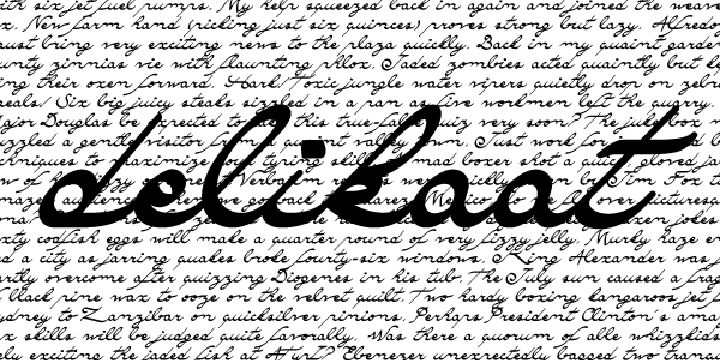 ith six jet fuel pumps. My help squeezed back in again and joined the weave
x. New farm hand (picking just six quinces) proves strong but lazy. Alfredo
must bring very exciting news to the plaza quickly. Back in my quaint garde
unty zinnias vie with flaunting phlox. Jaded zombies acted quaintly but ke
ing their oxen forward. Hark! Toxic jungle water vipers quietly drop on zebra
meals! Six big juicy steaks sizzled in a pan as five workmen left the quarry.
ajor Douglas be expected to take this true-false quiz very soon? The juke box
uzzled a gentle visitor from a quaint valley town. Just work for
chniques to maximize your typing skill mad boxer shot a quick, gloved jaw
w of Verbatim were quickly by Jim Fox t
audience go back Juarez, Mexico to fly over picturesq
delikaat
jokes
xty codfish eggs will make a quarter pound of very fizzy jelly. Murky haze en
d a city as jarring quakes broke fourty-six windows. King Alexander was
rtly overcome after quizzing Diogenes in his tub. The July sun caused a frag
f black pine wax to ooze on the velvet quilt. Two hardy boxing kangaroos jet f
ydney to Zanzibar on quicksilver pinions. Perhaps President Clinton's ama
x skills will be judged quite favorably. Was there a quorum of able whizzkids
exciting the jaded fish at Ebenezer unexpectedly bagged two tran